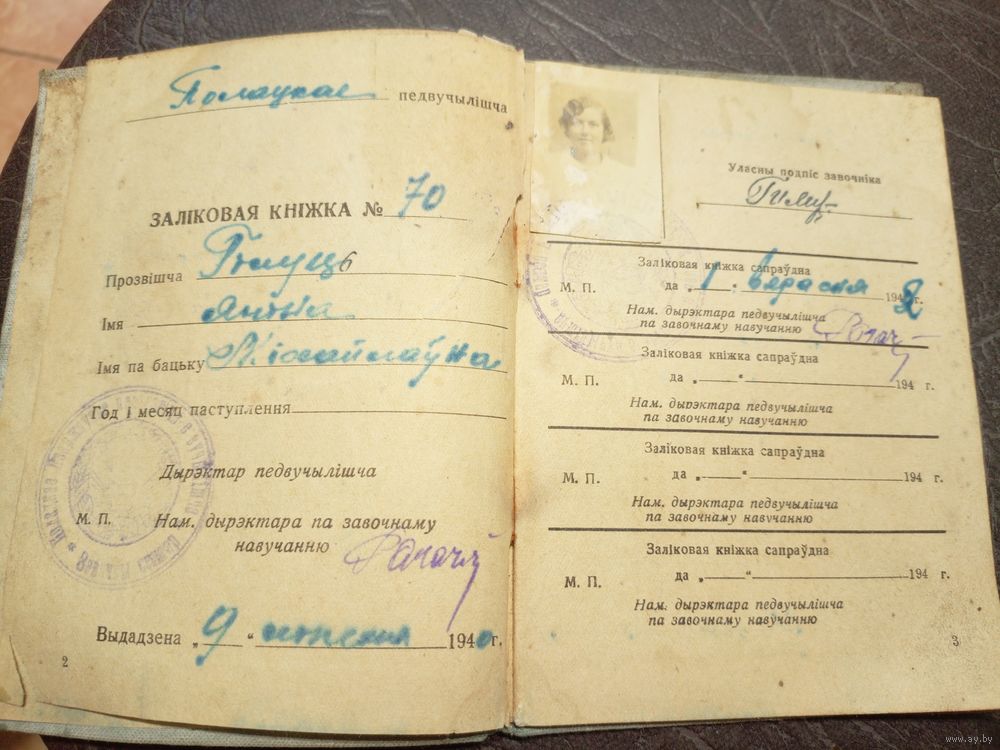 Полацкае педвучылішча
ЗАЛІКОВАЯ КНІЖКА № 70
Прозвішча
Імя
Імя па бацьку Міхайлаўна
Год і месяц паступлення
Дырэктар педвучылішча
М. П. Нам. дырэктара па завочнаму
навучанню
Выдадзена „ 9 “ 1940г.
2
Уласны подпіс завочніка
Заліковая кніжка сапраўдна
М. П. да „ 1 “ 194 г.
Нам. дырэктара педвучылішча
па завочнаму навучанню
Заліковая кніжка сапраўдна
М. П. да „ “ 194 г.
Нам. дырэктара педвучылішча
па завочнаму навучанню
Заліковая кніжка сапраўдна
М. П. да „ “ 194 г.
Нам. дырэктара педвучылішча
па завочнаму навучанню
Заліковая кніжка сапраўдна
М. П. да „ “ 194 г.
Нам. дырэктара педвучылішча
па завочнаму навучанню
3
www.ay.by